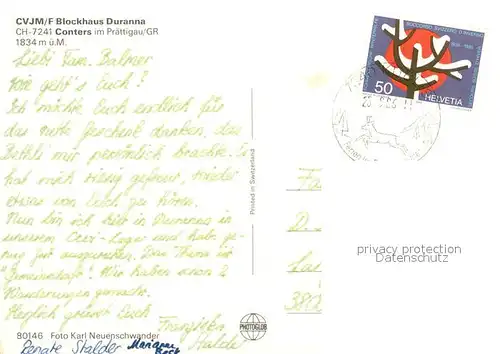 CVJM/F Blockhaus Duranna
CH-7241 Conters im Prättigau/GR
1834 m ü.M.
Liebi Fam. Balmer
Wie geht's Euch?
Ich möchte Euch endlich für
das nette Geschenk danken, das
Bethli mir persönlich brachte. Es
hat mich riesig gefreut, wieder
etwas von Euch zu hören.
Nun bin ich hier in Duranna in
unserem Cevi-Lager und habe
zum Das Thema ist
"Gemeinschaft". Wir haben schon 2
Wanderungen gemacht.
Herzlich grüsst Euch
Franziska
Stalder
Renate Stalder Marianne
80146 Foto Karl Neuenschwander
Printed in Switzerland
PHOTOGLOB
50 HELVETIA
Fa
D.
380
privacy protection
Datenschutz